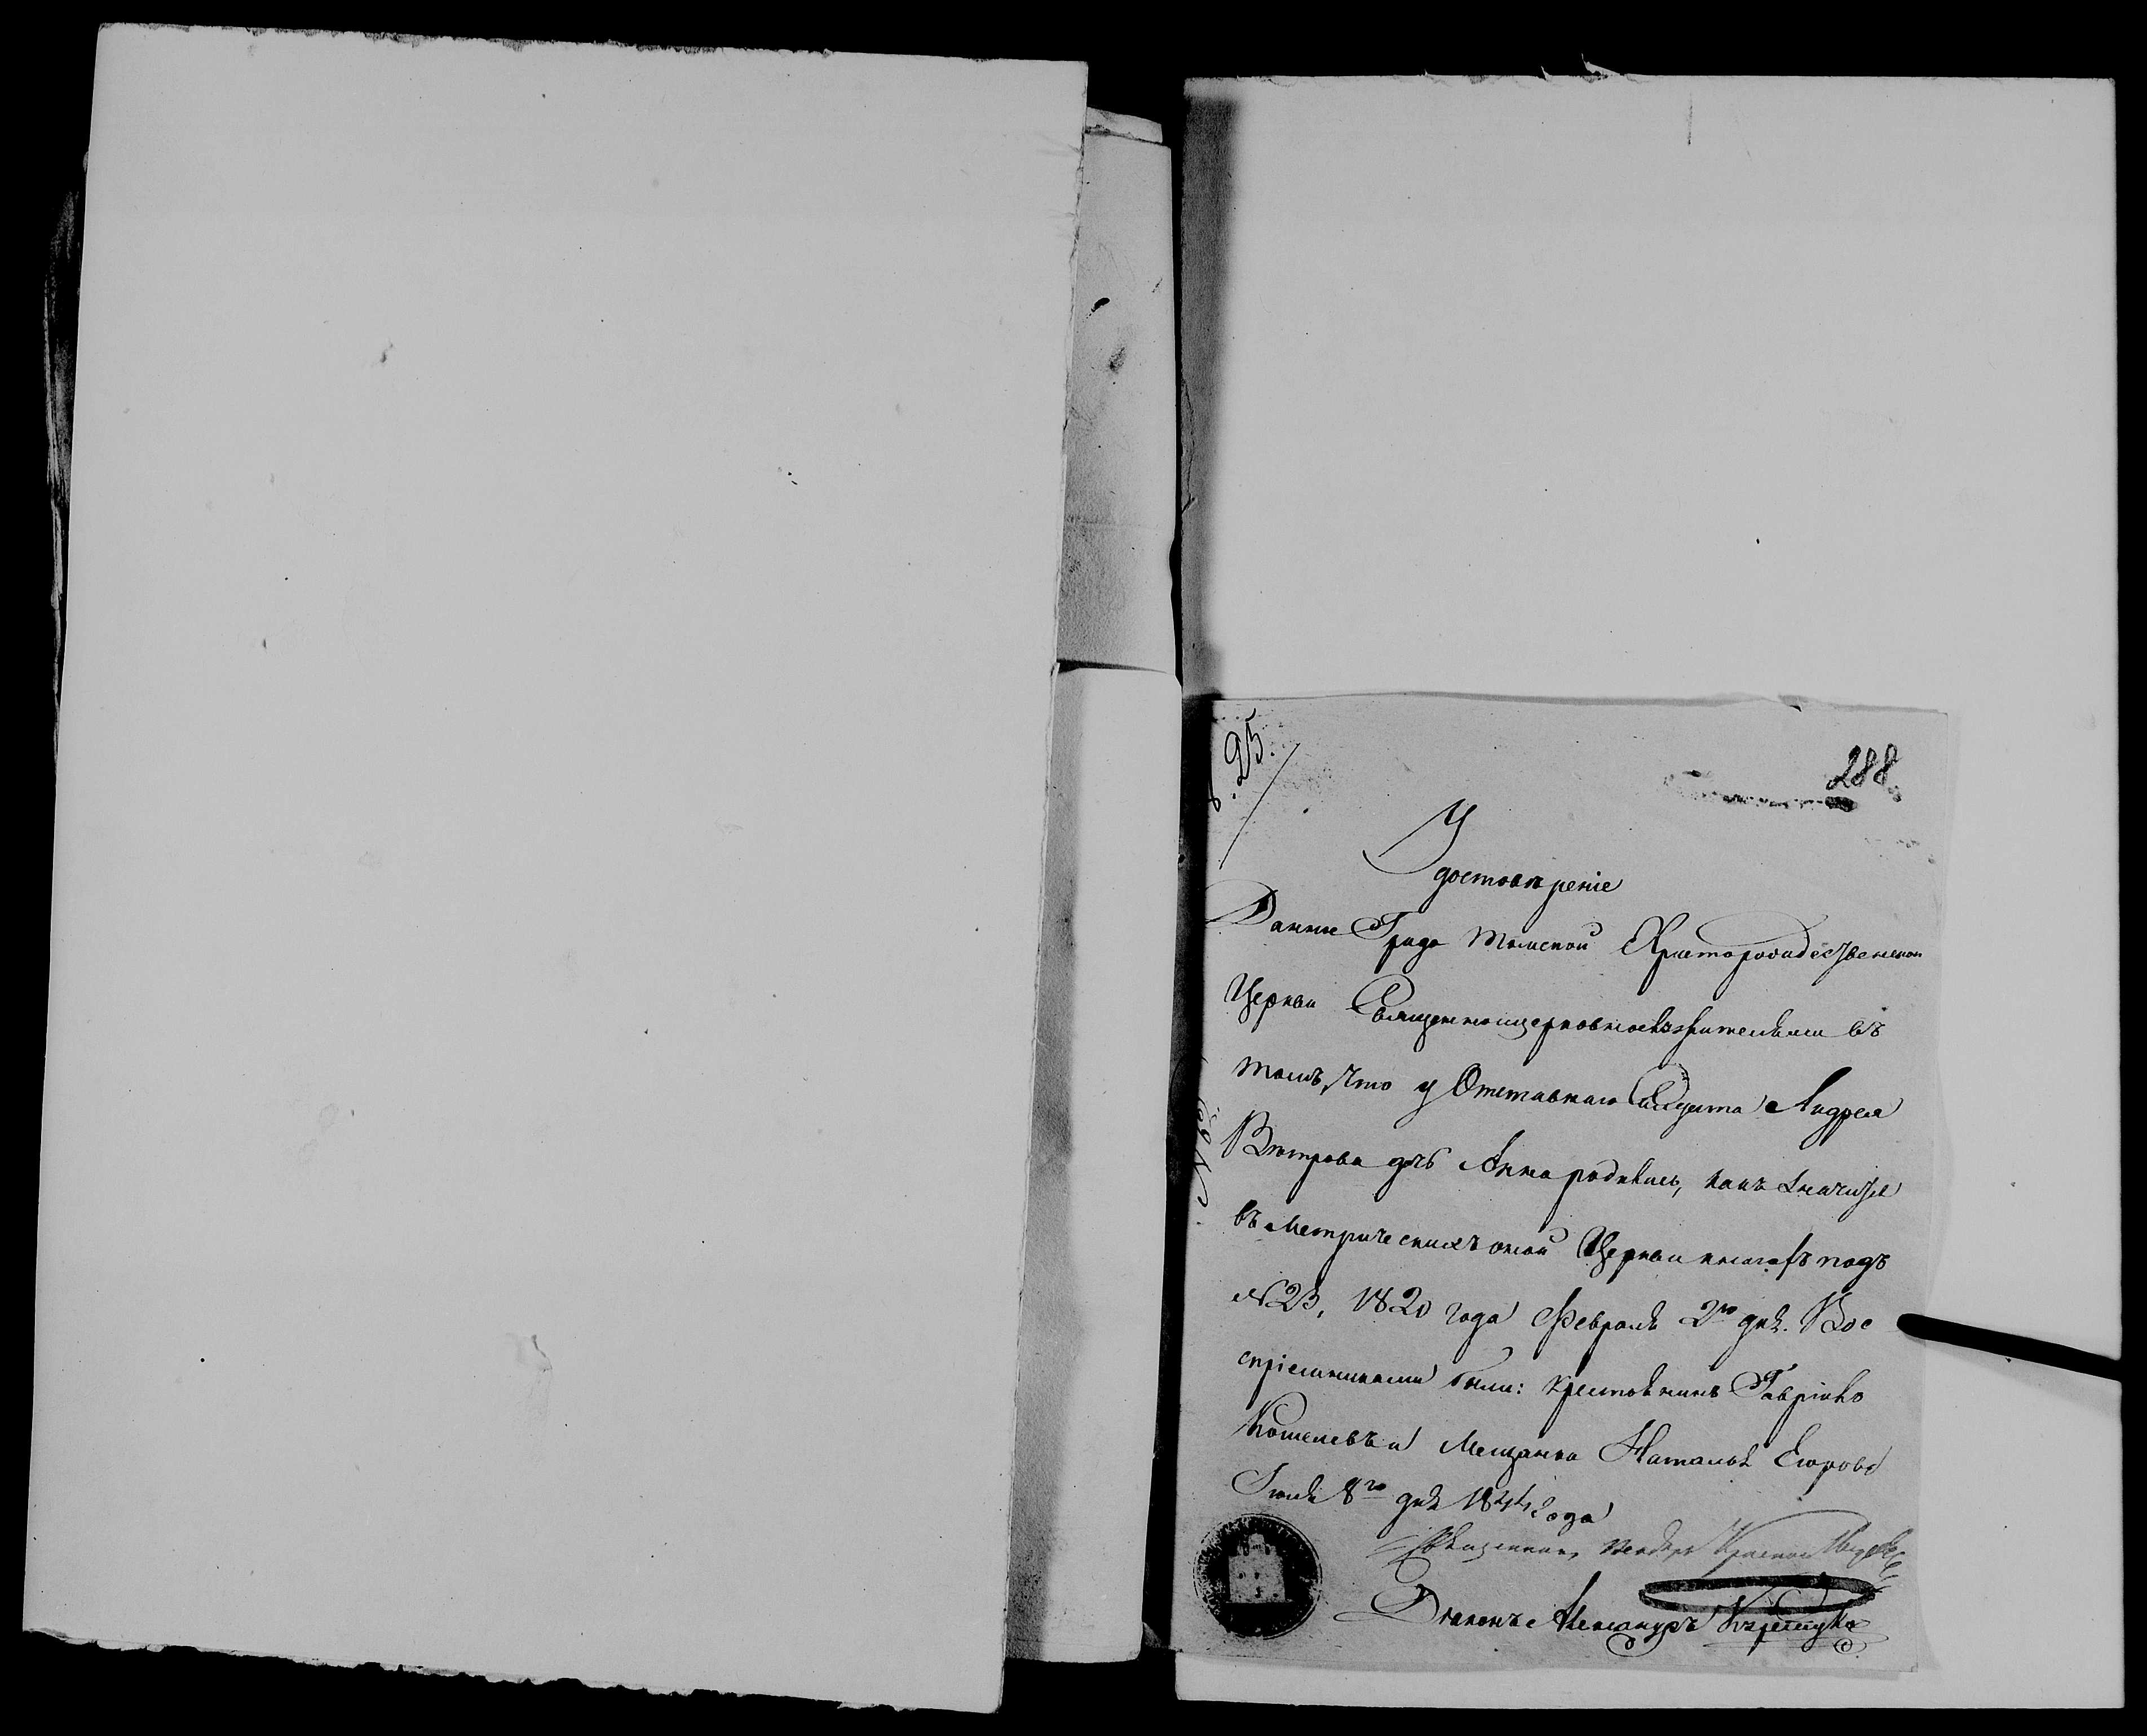 288
Удостоверенiе
Дано Града Томской Христорождественской
Церкви Священноцерковнослужителями въ
томъ, что у Отставнаго Солдата Андрея
Вятрова дочь Анна родилась, какъ значится
въ метрическихъ оной Церкви книгахъ подъ
№23, 1820 года Февраля 2го дня. Вос
прiемниками были: крестьянинъ Гаврiилъ
Кошелевъ и Мещанка Наталья Егорова
Iюля 8го дня 1844 года
Священникъ
Дiаконъ Александръ